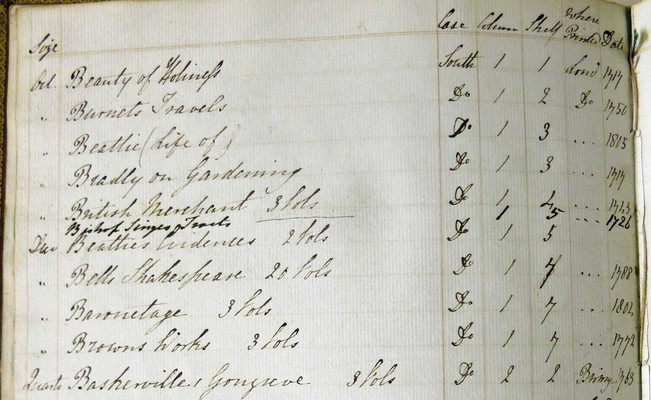 Size Case Colum Shelf Where Printed Date
Oct. Beauty of Holiness South 1 1 Lond 1717
" Burnets Travels Do 1 2 Do 1750
" Beattie (Life of) Do 1 3 ... 1805
" Bradly on Gardening Do 1 3 ... 1717
" British Merchant 3 Vols Do 1 4 ... 1743
Bishop Synges Tracts 1 5 ... 1726
Duo Beatties Evidences 2 Vols Do 1 5
" Bells Shakespeare 20 Vols Do 1 7 ... 1788
" Baronetage 3 Vols Do 1 7 ... 1804
" Browns Works 3 Vols Do 1 7 ... 1772
Quarto Baskervilles Congreve 3 Vols Do 2 2 Birmg. 1763